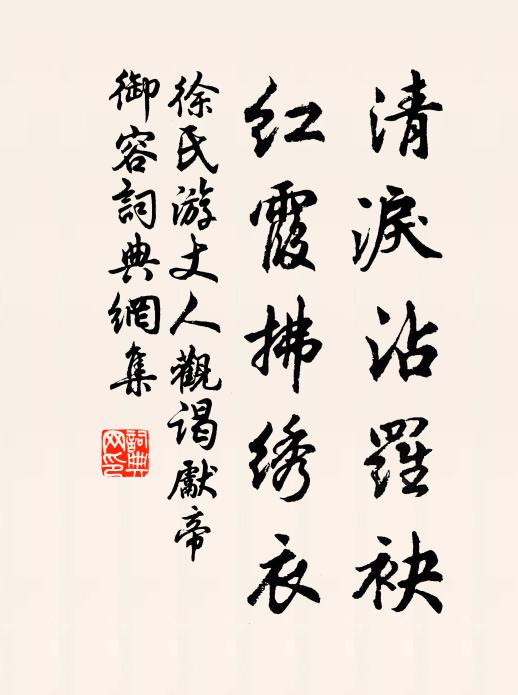 清淚沾羅袂
紅霞拂绣衣
徐氏游丈人觀謁獻帝
御容詞典網集
詞典网印